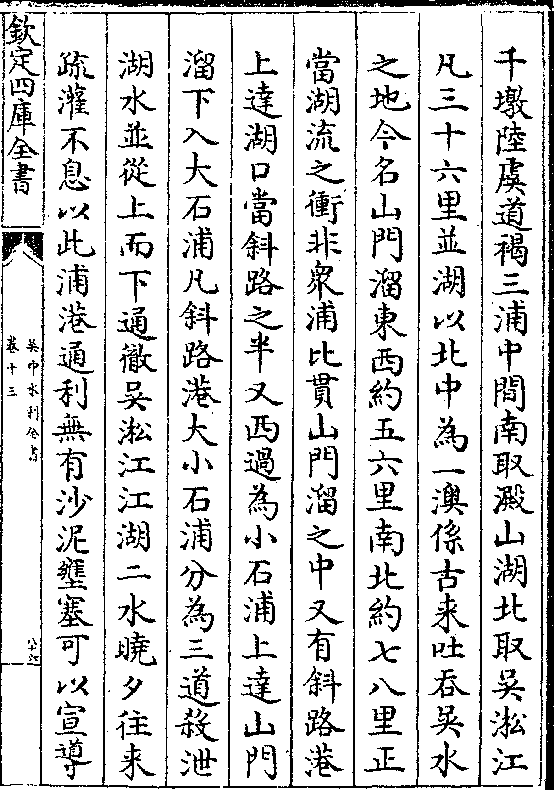 千墩陸虞道褐三浦中間南取澱山湖北取吳淞江
凡三十六里並湖以北中為一澳係古来吐吞吳水
之地今名山門溜東西約五六里南北約七八里正
當湖流之衝非衆浦比貫山門溜之中又有斜路港
上達湖口當斜路之半又西過為小石浦上達山門
溜下入大石浦凡斜路港大小石浦分為三道殺泄
湖水並從上而下通徹吳淞江江湖二水曉夕往来
疏灌不息以此浦港通利無有沙泥壅塞可以宣導
欽定四庫全書
吳中水利全書
卷十三